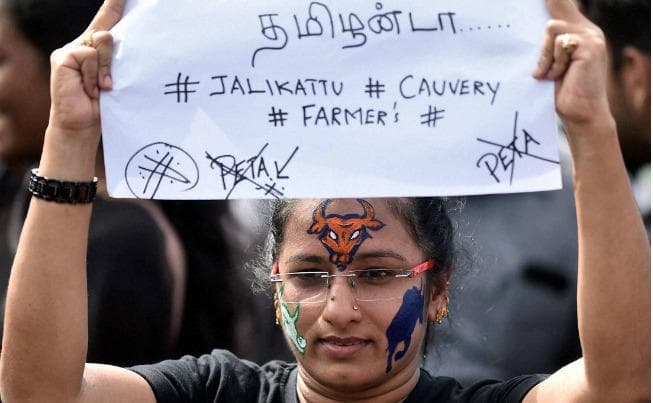 தமிழண்டா......
# JALIKATTU # CAUVERY
# FARMER'S #
# PETA PETA